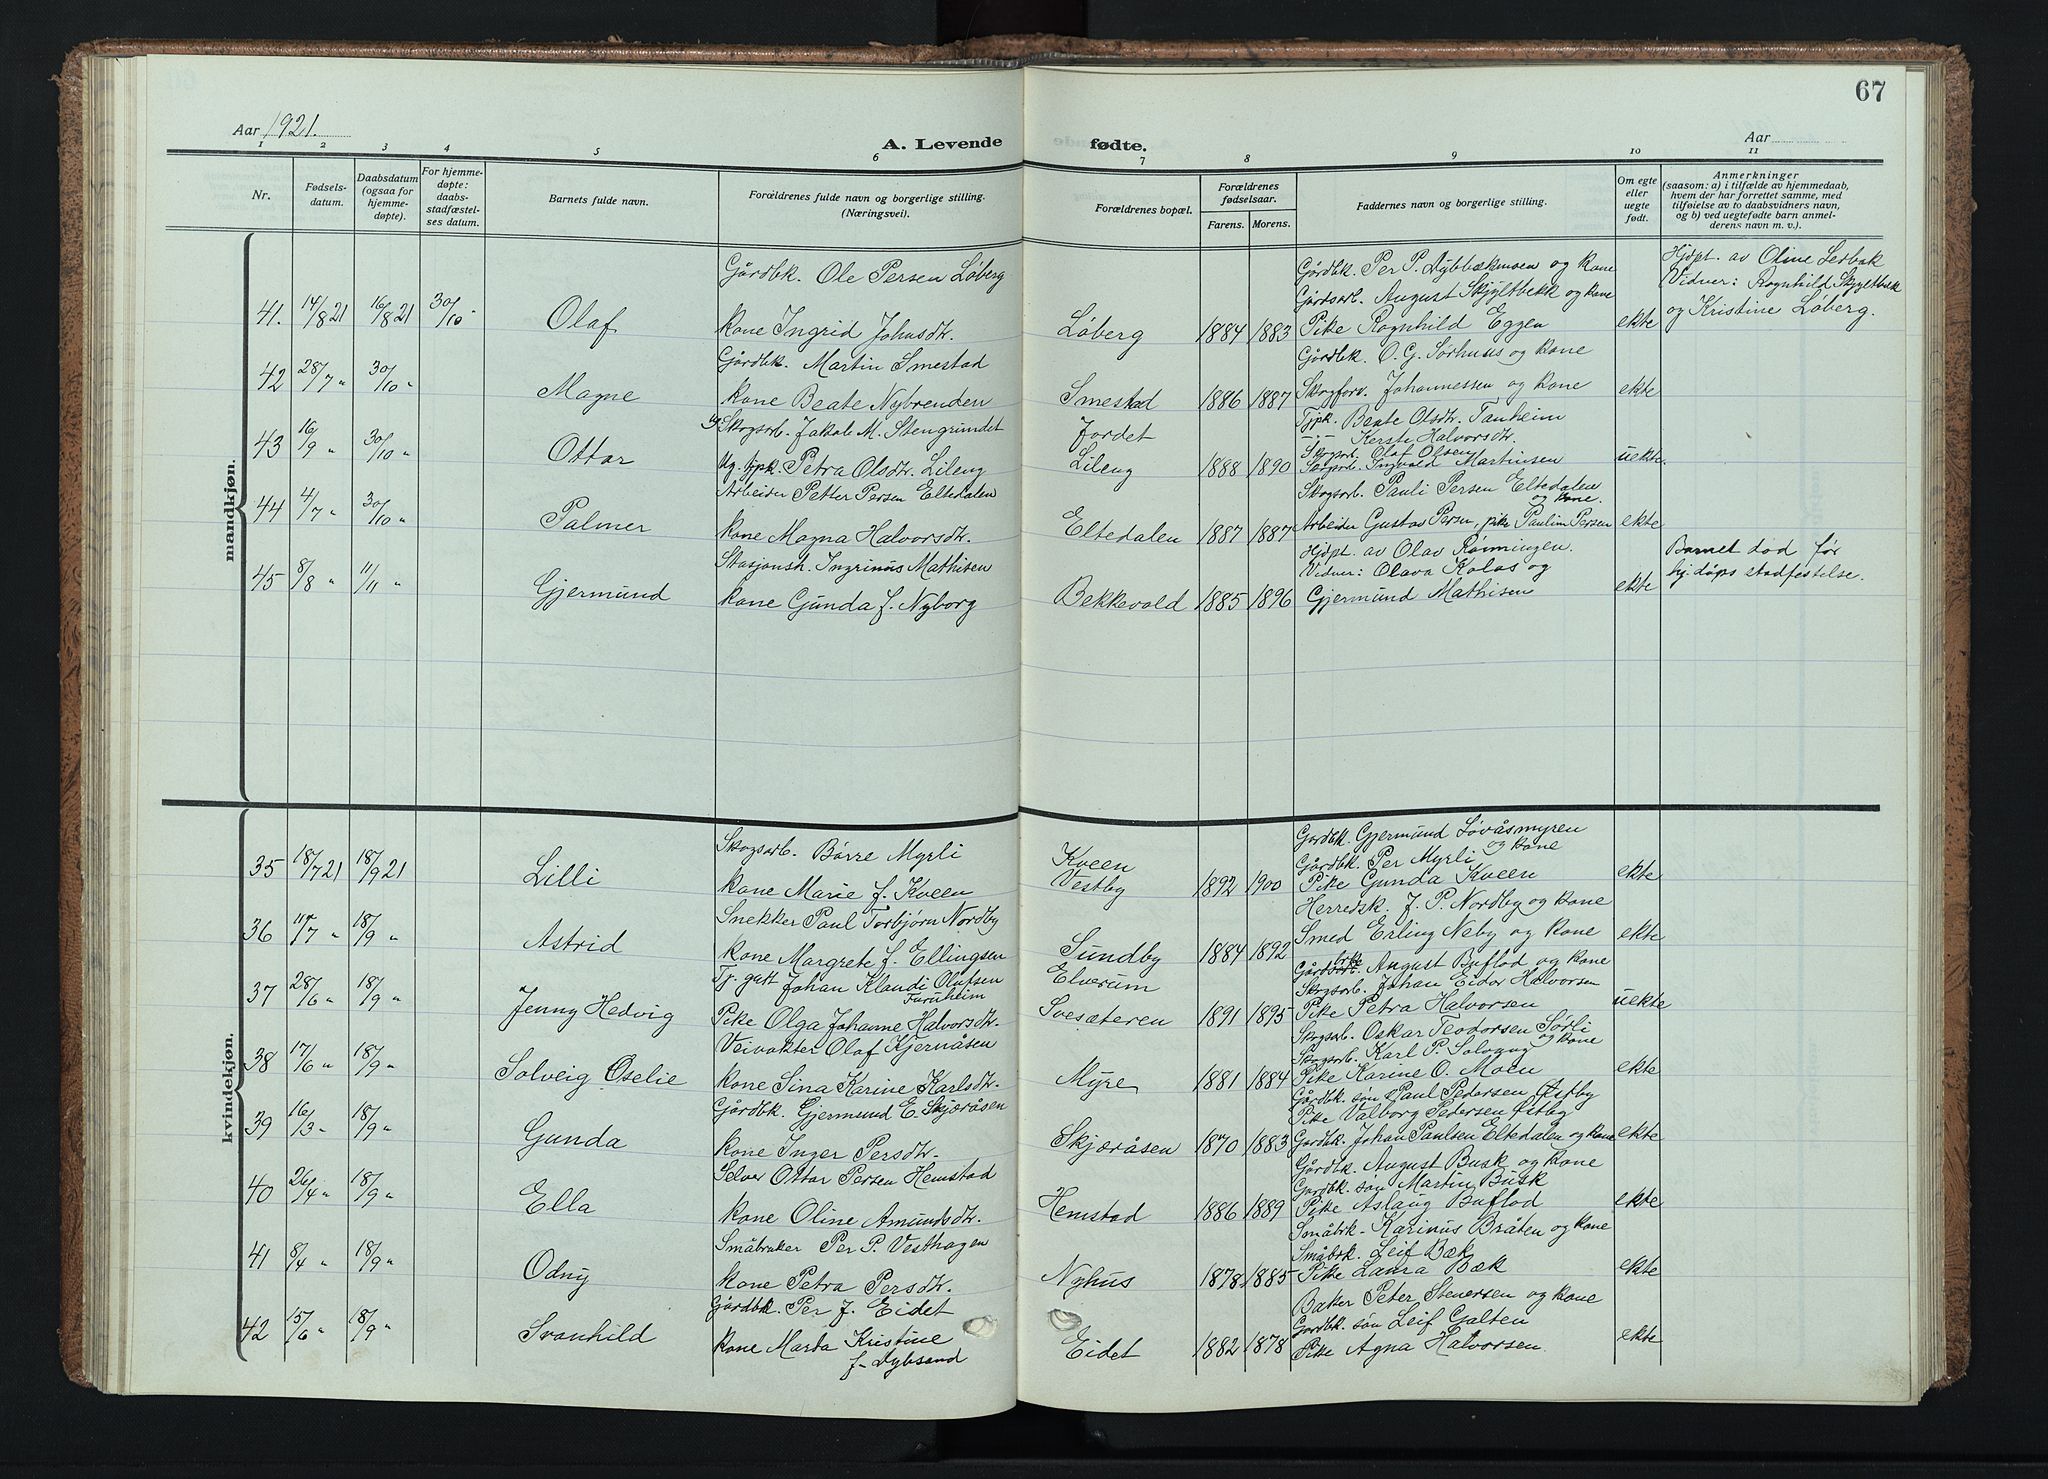 67
Aar 1921.
A. Levende fødte.
Aar
1 2 3 4 5 6 7 8 9 10 11
Nr.
Fødsels-
datum.
Daabsdatum
(ogsaa for
hjemme-
døpte).
For hjemme-
døpte:
daabs-
stadfæstel-
ses datum.
Barnets fulde navn.
Forældrenes fulde navn og borgerlige stilling.
(Næringsvei).
Forældrenes bopæl.
Forældrenes
fødselsaar.
Farens. Morens.
Faddernes navn og borgerlige stilling.
Om egte
eller
uegte
født.
Anmerkninger
(saasom: a) i tilfælde av hjemmedaab,
hvem der har forrettet samme, med
tilføielse av to daabsvidners navn,
og b) ved uegtefødte barn anmel-
derens navn m. v.).
mandkjøn.
Gårdbk. Ole Persen Løberg
Gårdbk. Per P. Dybbækmoen og kone
Hjdpt. av Oline Ledbak
Gårdsarb. August Skjyltbekk og kone
Vidner: Ragnhild Skjyltbæk
41. 14/8 21 16/8 21 30/10 Olaf kone Ingrid Johnsdtr. Løberg 1884 1883 Pike Ragnhild Eggen ekte og Kristine Løberg.
Gårdbk. Martin Smestad
Gårdbk. O. G. Sørhuus og kone
42 28/7 " 30/10 " Magne kone Beate Nybrenden Smestad 1886 1887 Skogforv. Johannessen og kone ekte
Skogsarb. Jakob M. Stengrundet Jordet
Tjpk. Beate Olsdtr. Tanheim
-"- Kerste Halvorsdtr.
Skogsarb. Olaf Olsen
43 16/9 " 30/10 " Ottar Ug. tjpk. Petra Olsdtr. Lileng Lileng 1888 1890 Skogsarb. Ingvald Martinsen uekte.
Arbeider Petter Persen Eltedalen
Skogsarb. Pauli Persen Eltedalen
og kone.
44 4/7 " 30/10 " Palmer kone Magna Halvorsdtr. Eltedalen 1887 1887 Arbeider Gustav Persen, pike Paulim Persen ekte
Stasjonsh. Ingrinus Mathisen
Hjdpt. av Olav Rønningen.
Barnet død før
Vidner: Olava Kolos og
hj. dåps stadfestelse.
45 8/8 " 11/11 " Gjermund kone Gunda f. Nyborg Bekkevold 1885 1896 Gjermund Mathisen ekte
kvindekjøn.
Skogsarb. Børre Myrli Kveen
Gardbk. Gjermund Løvåsmyren
og kone
Gårdbk. Per Myrli
35 18/7 21 18/9 21 Lilli kone Marie f. Kveen Vestby 1892 1900 Pike Gunda Kveen ekte
Snekker Paul Torbjørn Nordby
Herredsk. J. P. Nordby og kone
36 11/7 " 18/9 " Astrid kone Margrete f. Ellingsen Sundby 1884 1892 Smed Erling Neby og kone ekte
Tj. gutt Johan Klaudi Olafsen
Furuheim
Elverum
August Buflod og kone
Skogsarb. Johan Eidor Halvorsen
37 28/6 " 18/9 " Jenny Hedvig Pike Olga Johanne Halvorsdtr. Svesæteren 1891 1895 Pike Petra Halvorsen uekte
Veivokter Olaf Kjernåsen
Skogsarb. Oskar Teodorsen Sørli
og kone
Skogsarb. Karl P. Solvang
38 17/6 " 18/9 " Solveig Oselie kone Sina Karine Karlsdtr. Myre 1881 1884 Pike Karine O. Moen ekte
Gårdbk. Gjermund E. Skjæråsen
Gårdbk. søn Paul Pedersen Østby
Pike Valborg Pedersen Østby
39 16/3 " 18/9 " Gunda kone Inger Persdtr. Skjæråsen 1870 1883 Gardbk. Johan Paulsen Eltedalen og kone ekte
Selver Ottar Persen Hemstad
Gårdbk. August Busk og kone
Gardbk. søn Martin Busk
40 26/4 " 18/9 " Ella kone Oline Amundsdtr. Hemstad 1886 1889 Pike Aslaug Buflod ekte
Småbruker Per P. Vesthagen
Småbk. Karinus Bråten og kone
Småbk. Leif Bæk
41 8/4 " 18/9 " Odny kone Petra Persdtr. Nyhus 1878 1885 Pike Laura Bæk ekte
Gårdbk. Per J. Eidet
Baker Peter Stenersen og kone
Gardbk. søn Leif Galten
42 15/6 " 18/9 " Svanhild kone Marta Kristine Eidet 1882 1878 Pike Agna Halvorsen. ekte
f. Dybsand